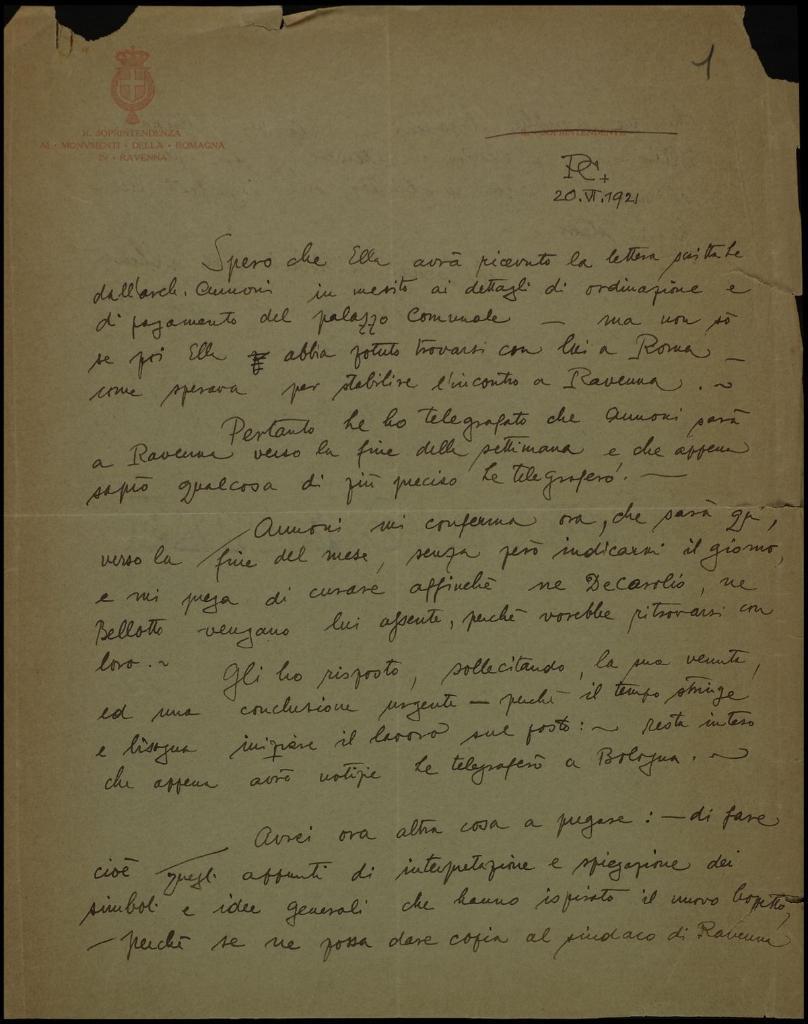 1
R. SOPRINTENDENZA
AI · MONVMENTI · DELLA · ROMAGNA
IN · RAVENNA
20.VI.1921
Spero che Ella avrà ricevuto la lettera scritta Le
dall'arch. Annoni in merito ai dettagli di ordinazione e
di pagamento del palazzo Comunale — ma non sò
se poi Ella abbia potuto trovarsi con lui a Roma —
come sperava per stabilire l'incontro a Ravenna. ~
Pertanto Le ho telegrafato che Annoni sarà
a Ravenna verso la fine della settimana e che appena
saprò qualcosa di più preciso Le telegraferò. —
Annoni mi conferma ora, che sarà quì,
verso la fine del mese, senza però indicarmi il giorno,
e mi prega di curare affinchè ne DeCarolis, ne
Bellotto vengano lui assente, perchè vorebbe ritrovarsi con
loro. ~ Gli ho risposto, sollecitando, la sua venuta,
ed una conclusione urgente — perchè il tempo stringe
e bisogna iniziare il lavoro sul posto: ~ resta inteso
che appena avrò notizie Le telegraferò a Bologna. ~
Avrei ora altra cosa a pregare: — di fare
cioè quegli appunti di interpretazione e spiegazione dei
simboli e idee generali che hanno ispirato il nuovo bozzetto,
— perchè se ne possa dare copia al sindaco di Ravenna